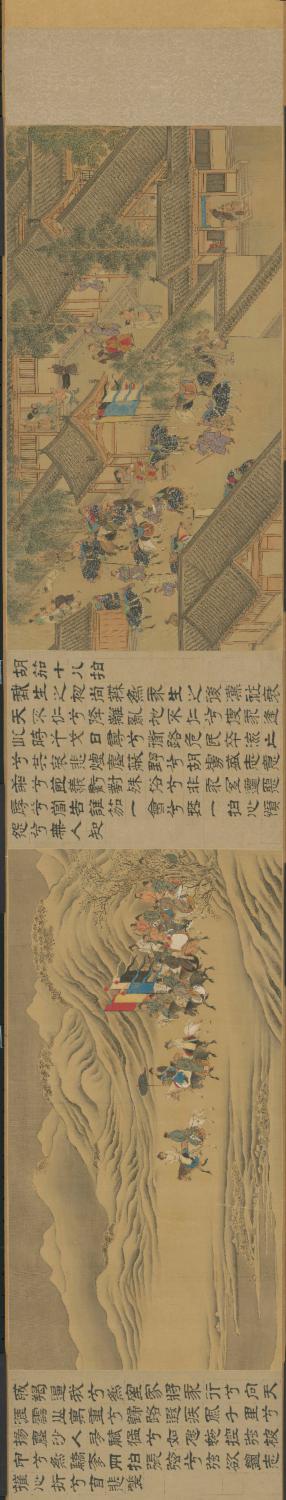 胡笳十八拍
我生之初尚無為我生之後漢祚衰
天不仁兮降亂離地不仁兮使我逢
此時干戈日尋兮衢路危民卒流亡
兮共哀悲煙塵蔽野兮胡虜盛志意
乖兮節義虧對殊俗兮非我宜遭惡
辱兮當告誰笳一會兮琴一拍心憤
怨兮無人知
戎羯逼我兮為室家將我行兮向天
涯雲山萬重兮歸路遐疾風千里兮
揚塵沙人多暴猛兮如虺蛇控弦被
甲兮為驕奢兩拍張弦兮弦欲絕志
摧心折兮自悲嗟